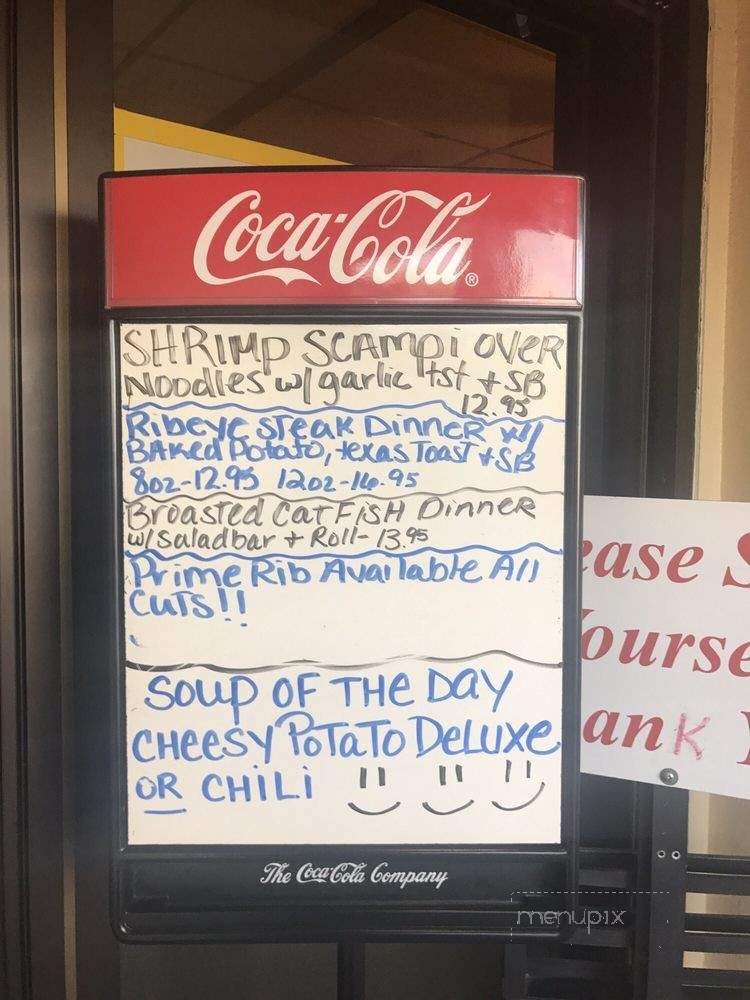 Coca-Cola®
SHRIMP SCAMPi OVER
NOODLES w/ garlic tst + SB
12.95
Ribeye STEAK DINNER w/
BAKED Potato, texas Toast + SB
8oz-12.95 12oz-16.95
Broasted CatFISH Dinner
w/ Saladbar + Roll- 13.95
Prime Rib Available All
CUTS!!
SOUP OF THE DAY
CHEESY POTATO DELUXE
OR CHILI
The Coca-Cola Company
ease S
ourse
ank Y
menupix